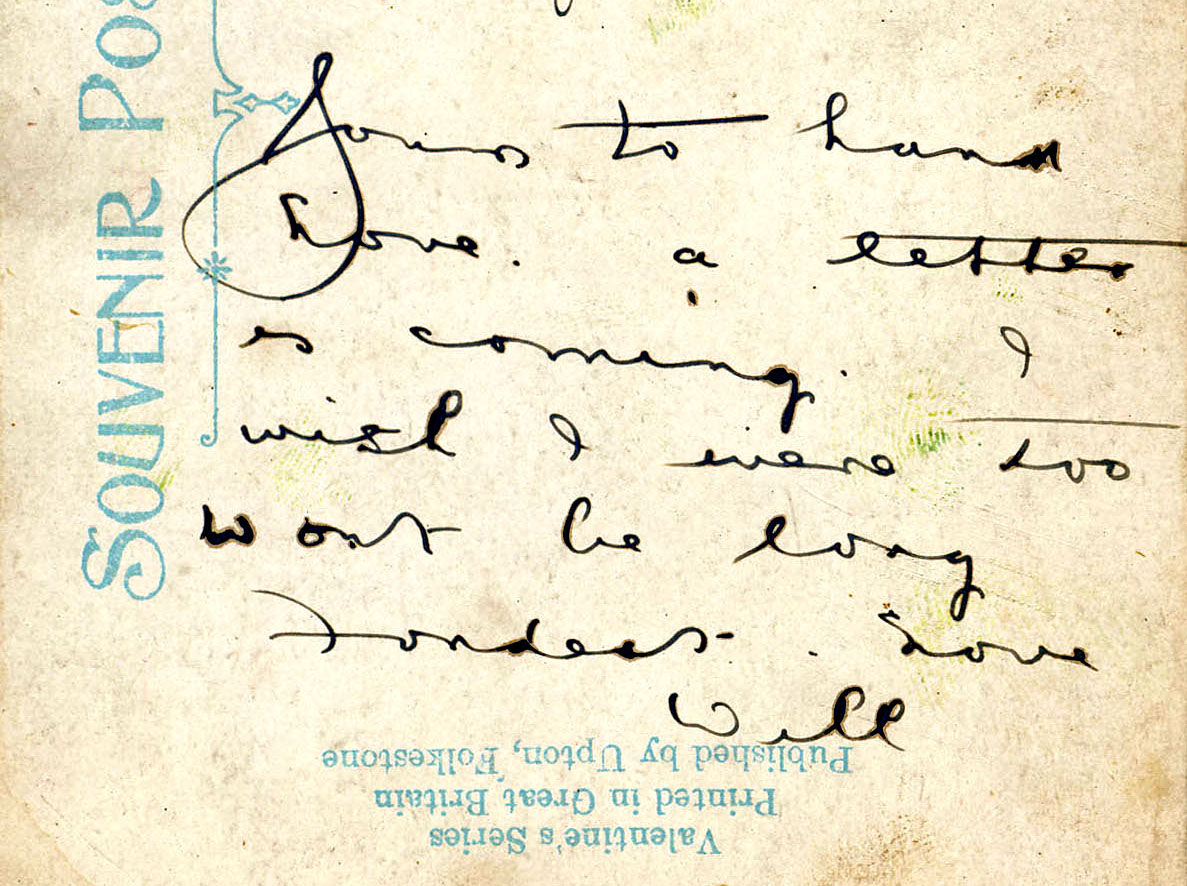 SOUVENIR POS
Yours to hand
Love. a letter
is coming. I
wish I were too
wont be long
Fondest. Love
Will
Published by Upton, Folkestone
Printed in Great Britain
Valentine's Series